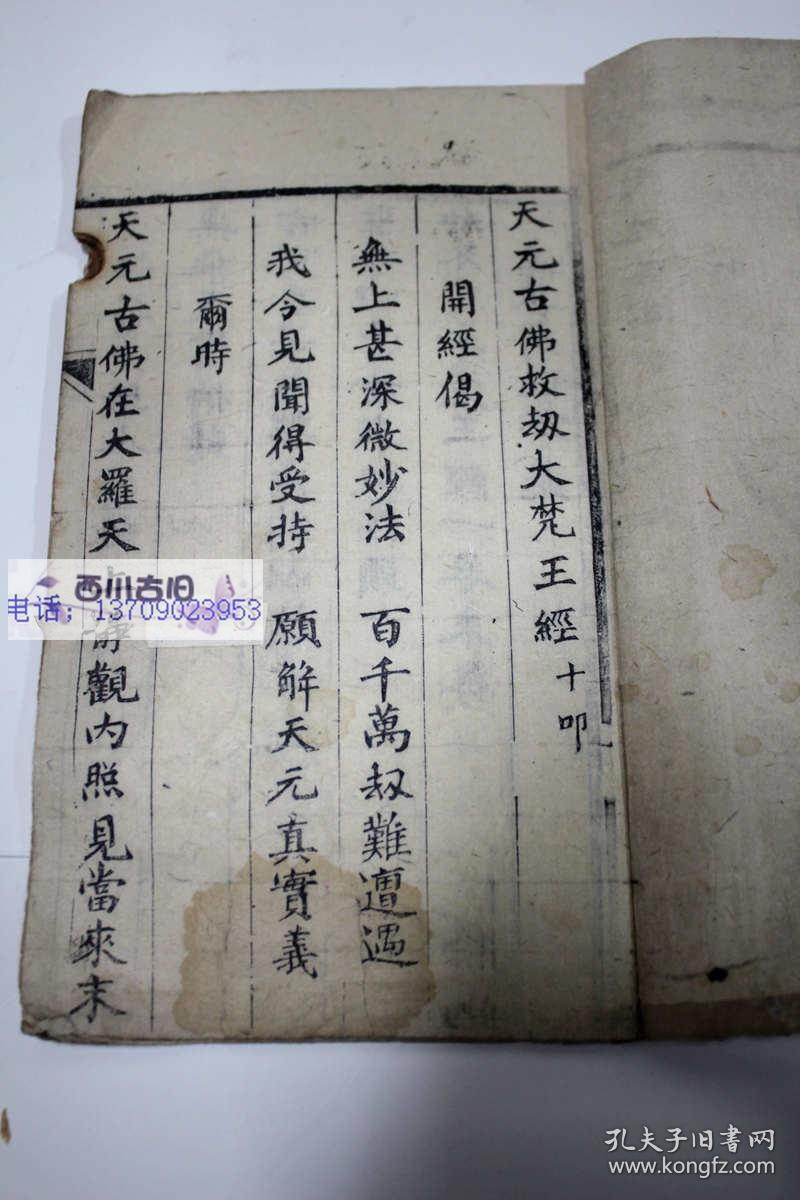 天元古佛救刼大梵王經十叩
開經偈
無上甚深微妙法 百千萬刼難遭遇
我今見聞得受持 願解天元真實義
爾時
天元古佛在大羅天 觀內照見當來末
西川古旧
电话；13709023953
孔夫子旧书网
www.kongfz.com